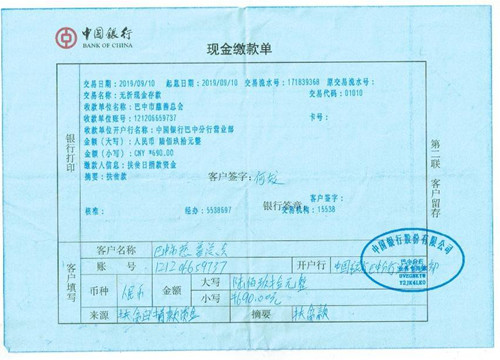 中国银行
BANK OF CHINA
现金缴款单
交易日期：2019/09/10 起息日期：2019/09/10 交易流水号：171839368 原交易流水号：
交易名称：无折现金存款 交易代码：01010
收款单位名称：巴中市慈善总会
收款单位账号：121206659737 卡号：
收款单位开户行名称：中国银行巴中分行营业部
金额（大写）：人民币 陆佰玖拾元整
金额（小写）：CNY ¥690.00
缴款人信息：扶贫日捐款资金
摘要：扶贫款
客户签字：
客户签字：
银行签章：
核准： 经办：5538697 交易机构：15538
银行打印
第二联 客户留存
客户填写
客户名称 巴中市慈善总会
账号 121206659737 开户行 中国银行
币种 人民币 金额 大写 陆佰玖拾元整
小写 ¥690.00元
来源 扶贫日捐款资金 摘要 扶贫款
中国银行股份有限公司
巴中分行